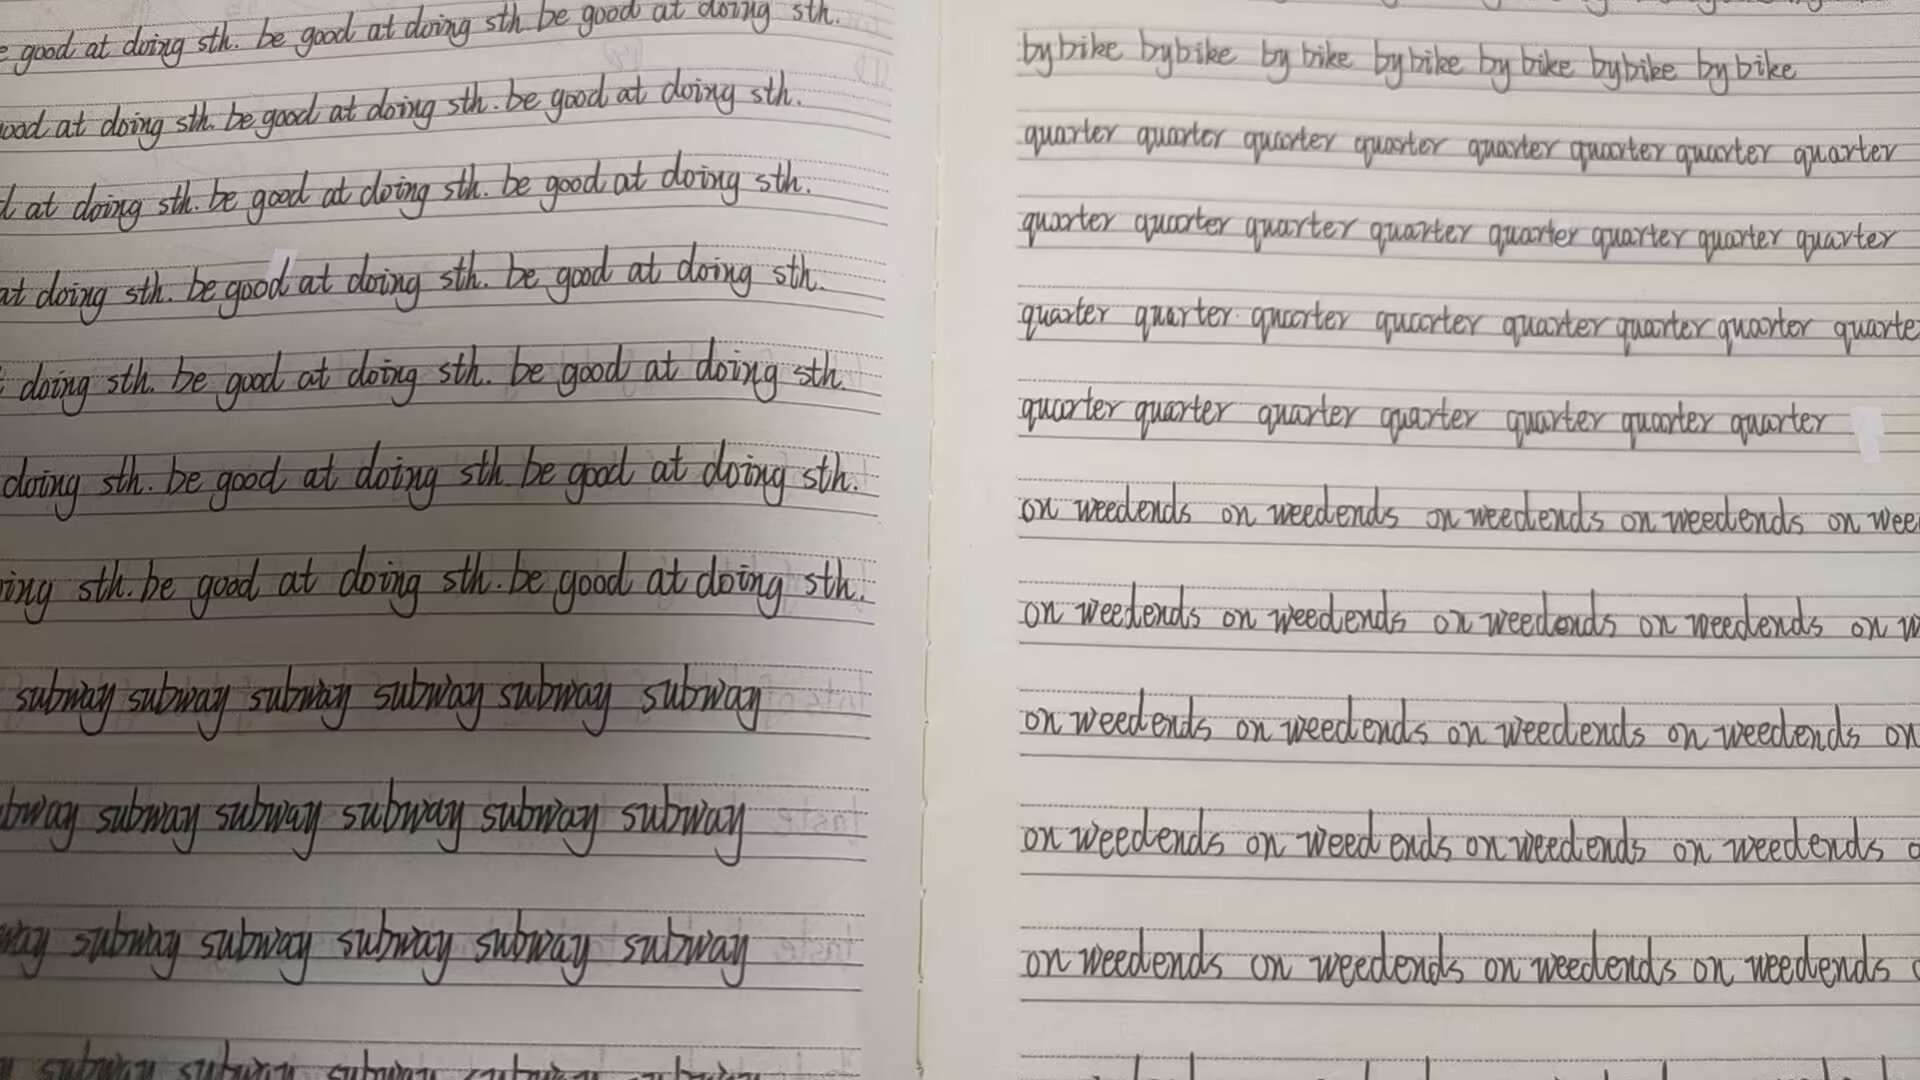 good at doing sth. be good at doing sth be good at doing sth.
at doing sth. be good at doing sth. be good at doing sth.
at doing sth. be good at doing sth. be good at doing sth.
at doing sth. be good at doing sth. be good at doing sth.
doing sth. be good at doing sth. be good at doing sth.
doing sth. be good at doing sth be good at doing sth.
sth. be good at doing sth. be good at doing sth.
subway subway subway subway subway subway
subway subway subway subway subway
subway subway subway subway subway
subway subway subway
by bike by bike by bike by bike by bike by bike by bike
quarter quarter quarter quarter quarter quarter quarter quarter
quarter quarter quarter quarter quarter quarter quarter quarter
quarter quarter. quarter quarter quarter quarter quarter quarte
quarter quarter quarter quarter quarter quarter quarter
on weedends on weedends on weedends on weedends on wee
on weedends on weedends on weedends on weedends on w
on weedends on weedends on weedends on weedends on
on weedends on weed ends on weedends on weedends
on weedends on weedends on weedends on weedends